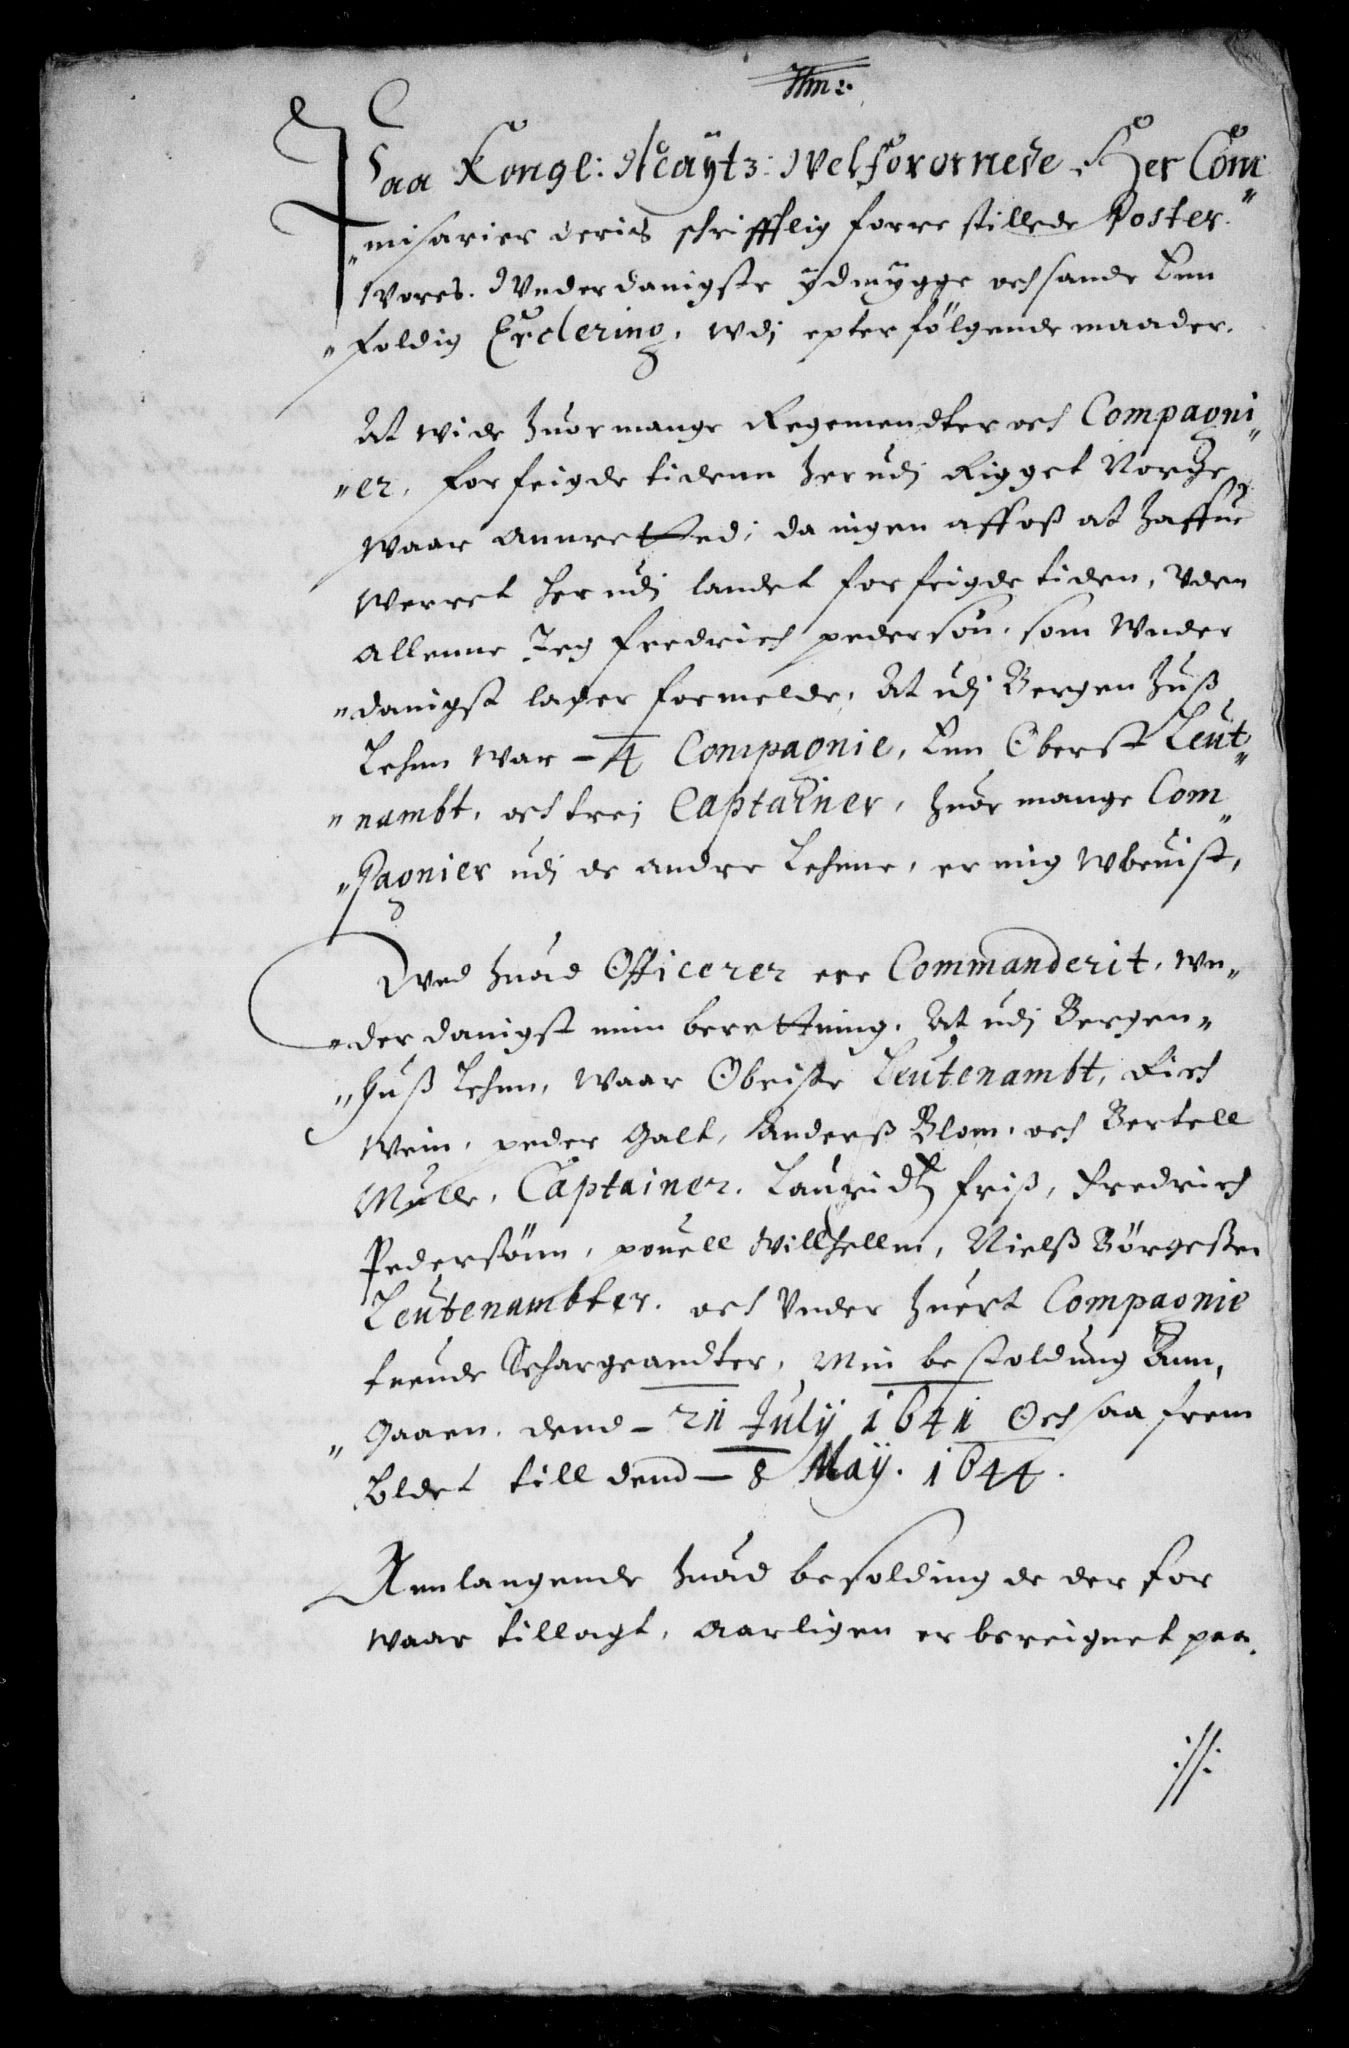 Jhm:
Paa Kongl: Mayts: Velforornede Her Com
"misarier deris schrifftlig forre stillede Poster."
Wores. Wnderdanigste ydmygge och sande Enn
"foldig Erclering, wdj epterfölgende maader.
At wide huor mange Regementer och Compagni"
"er, for feigde tidenn her udj Rigget Norge
waar annretted; da ingen aff oß at haffue
werret her udj landet for feigde tiden, Vden
allenne Jeg Fredrich pedersön, som Wnder
"danigst lader formelde, At udj Bergen huß
Lehnn war - 4 Compagnie, Enn Oberst Leut"
"nambt, och trej Captainer, huor mange Com"
"Pagnier udj de andre Lehnne, er mig Wbeuist,
Wed huad Officerer ere Commanderit, Wn"
"derdanigst min berettning, At udj Bergen"
"huß Lehnn, waar Obriste Leutenambt, Rich
Wein, peder Galt, Anderß Blom, och Bertell
Mulle, Captainer. Lauridtz Friß, Fredrich
Pedersönn, pouell Willhellm, Nielß Börgeßen
Leutenambter. och Vnder huert Compagnie
tuende Schargeandter, Min bestoldung Ann,
"Gaaen, dend - 21 July 1641 Och saa frem
Bldet till dend - 8 May. 1644.
Annlangende huad besolding de der for
waar tillagt, aarligen er bereignet paa.
://: